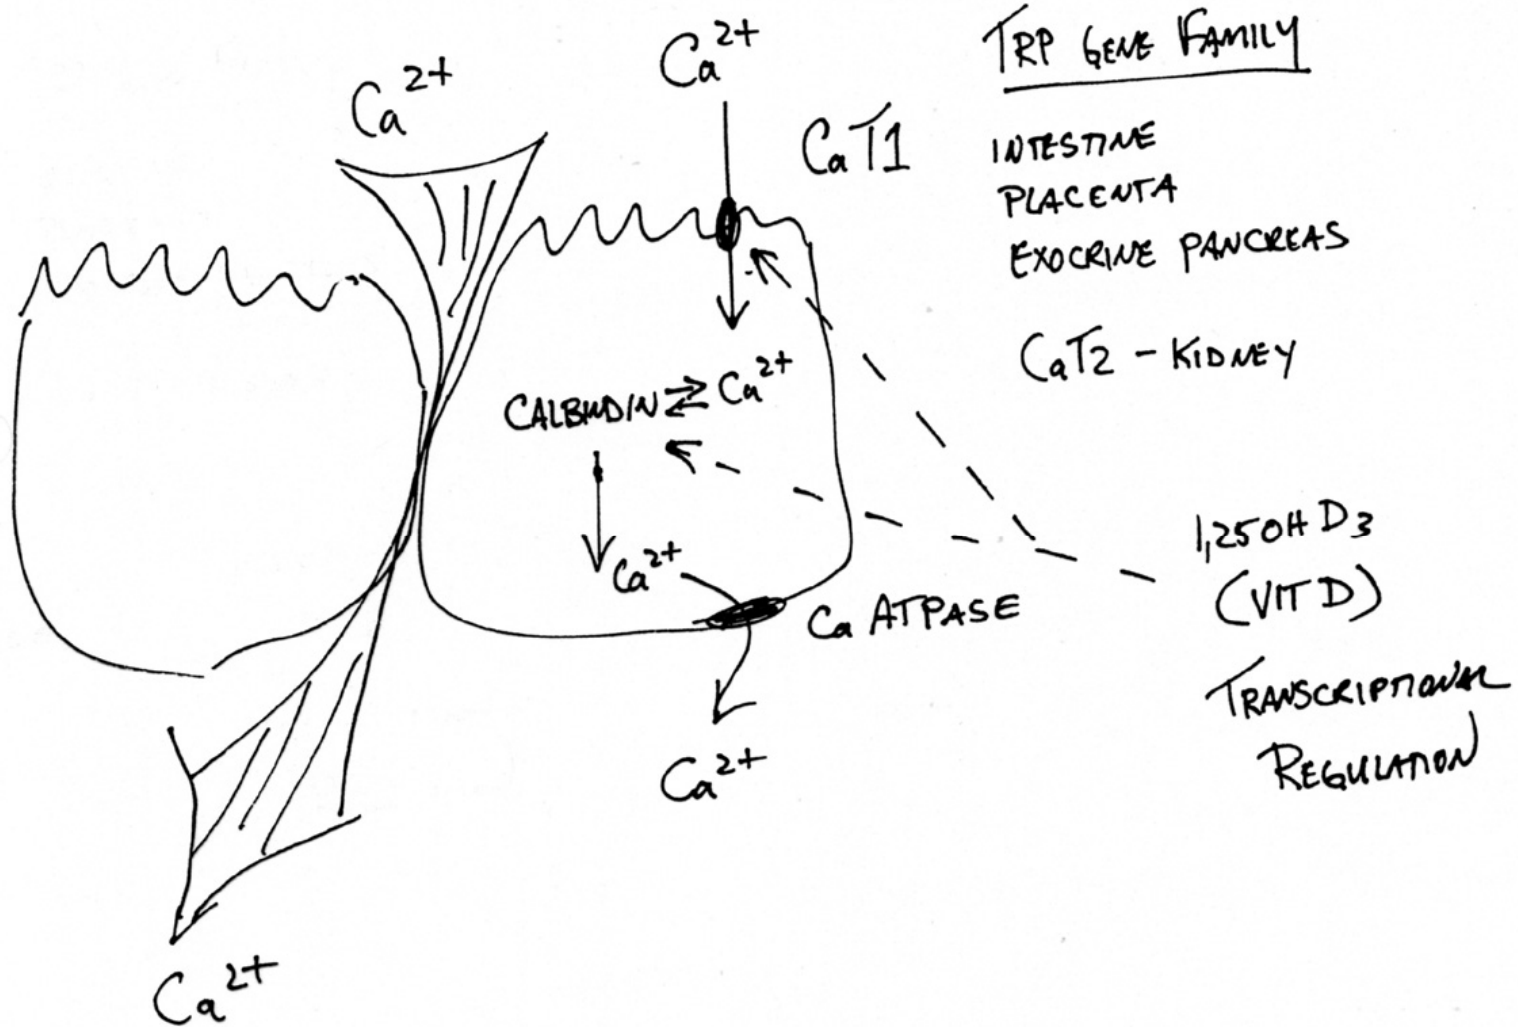 Ca2+
Ca2+
CaT1
TRP GENE FAMILY
INTESTINE
PLACENTA
EXOCRINE PANCREAS
CaT2 - KIDNEY
CALBINDIN ⇌ Ca2+
Ca2+
Ca ATPASE
Ca2+
Ca2+
1,25OH D3
(VIT D)
TRANSCRIPTIONAL
REGULATION